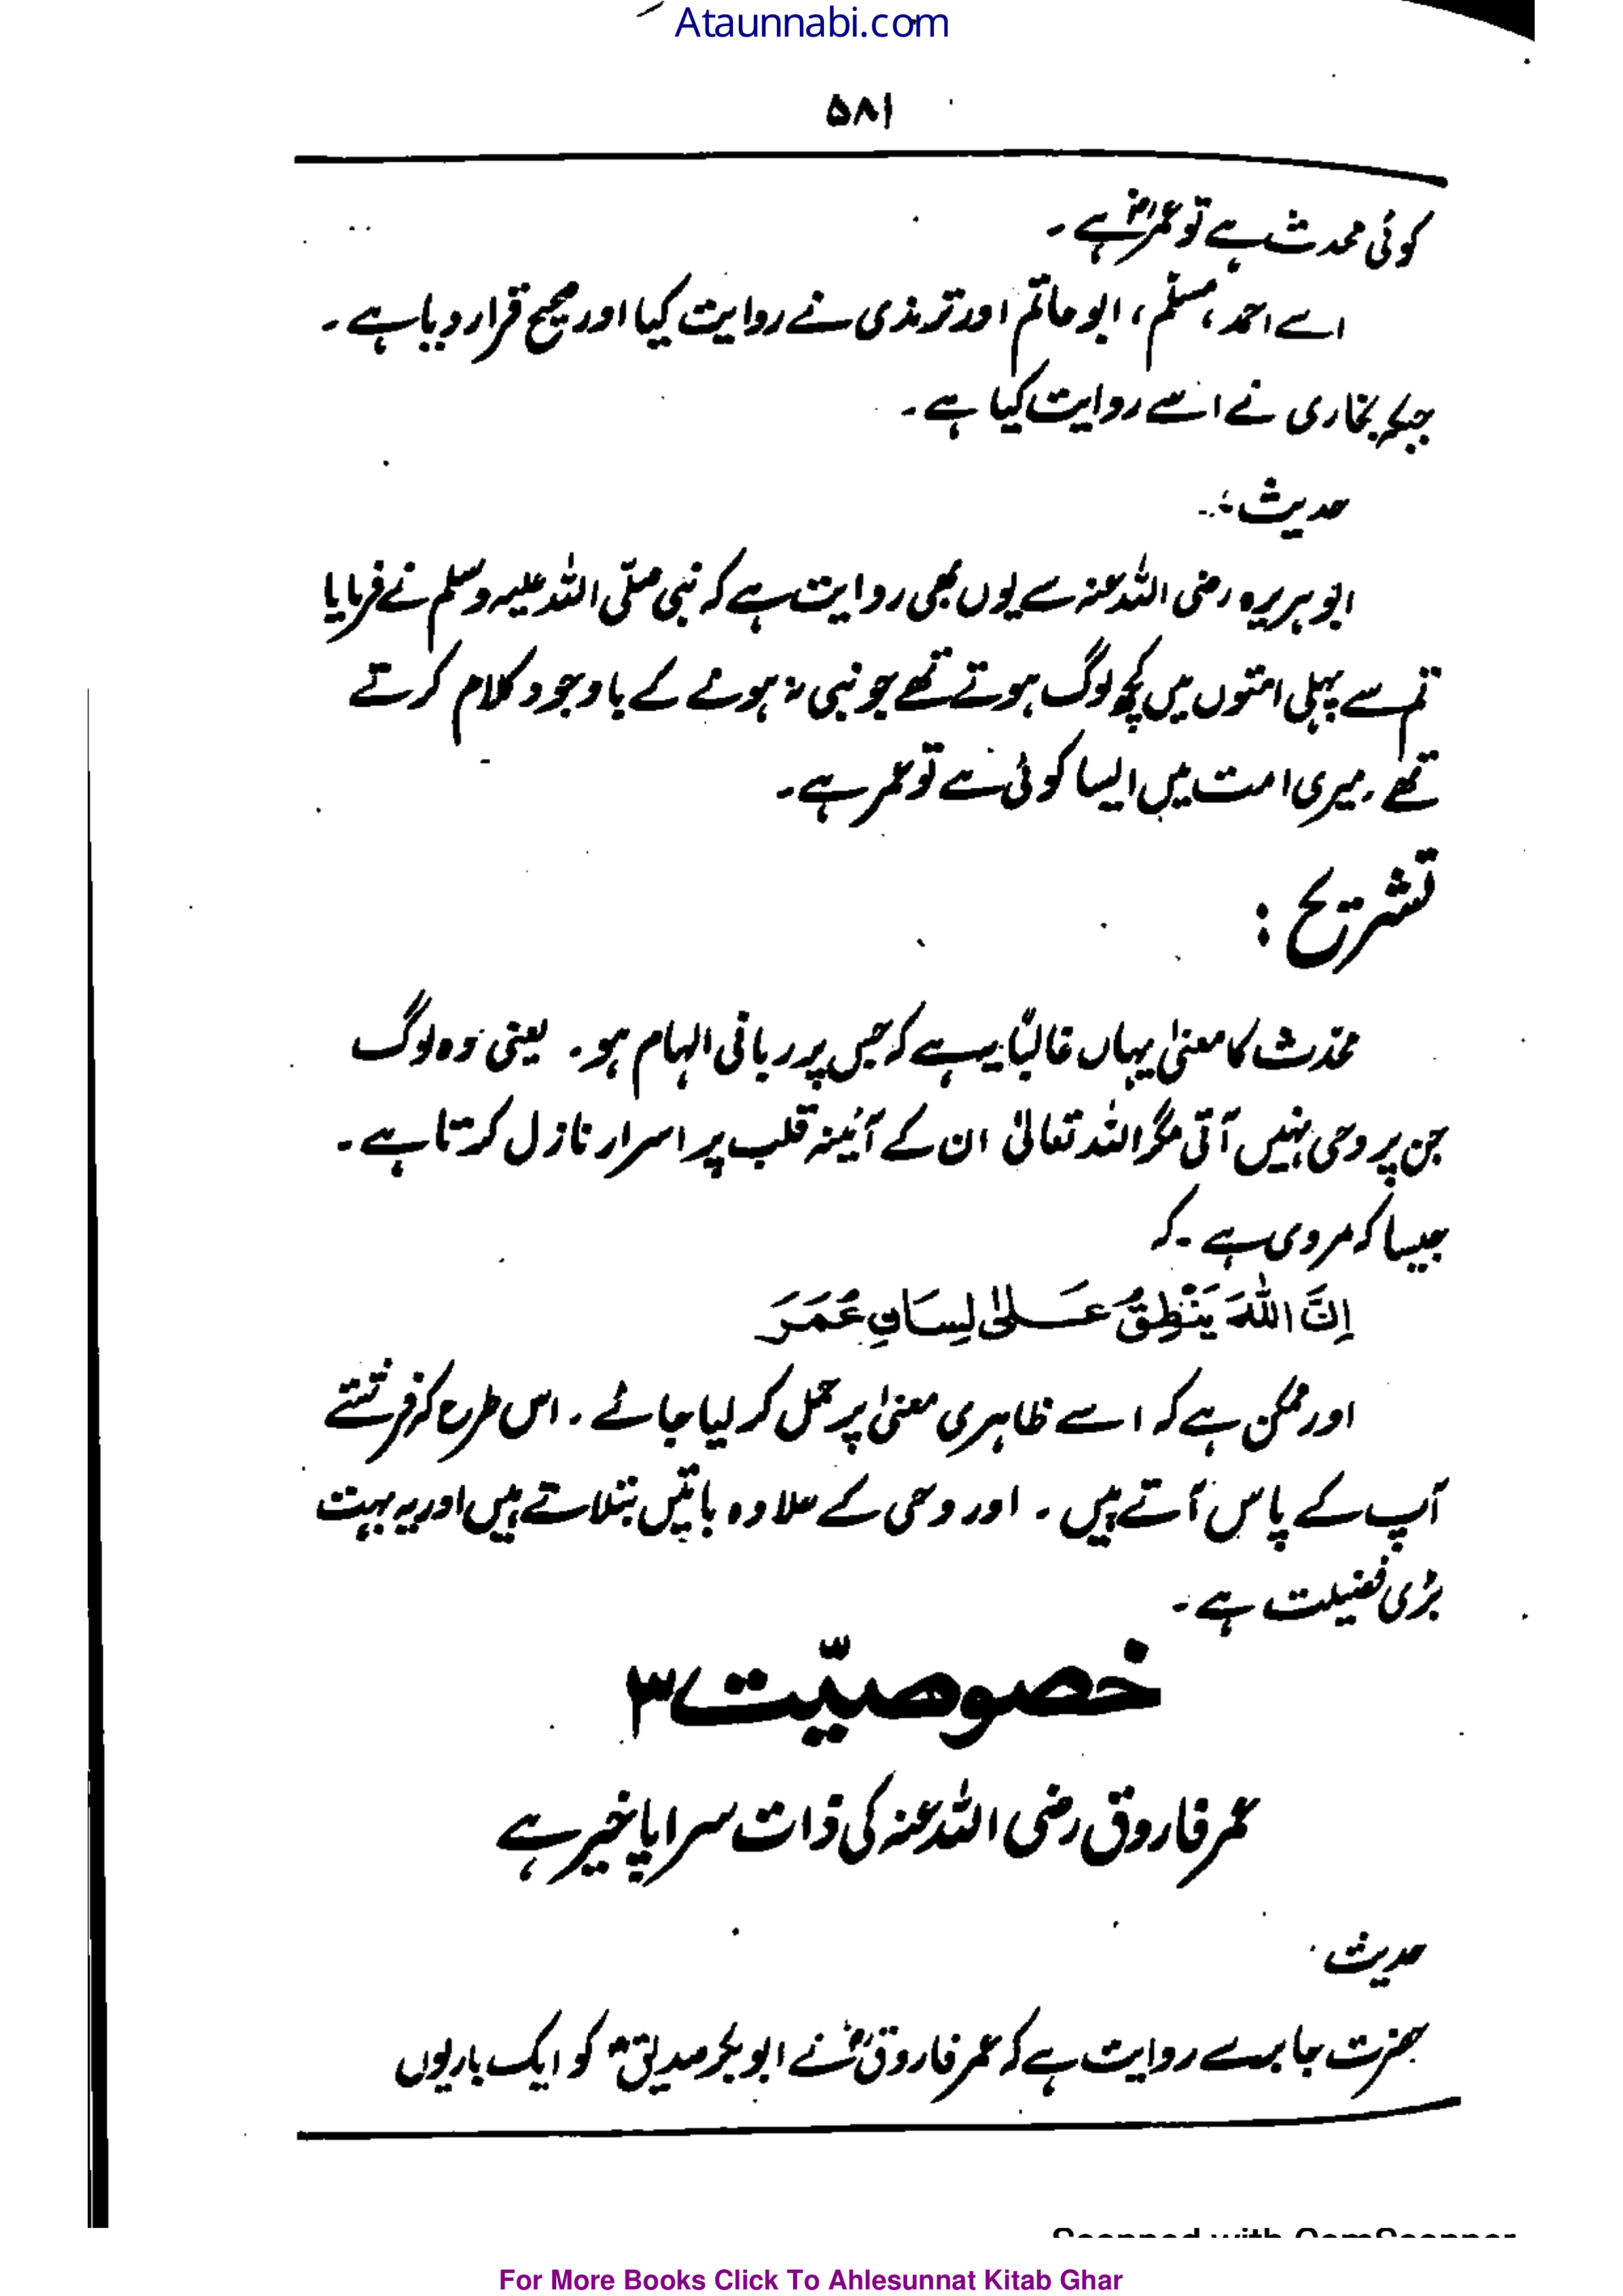 Ataunnabi.com
۵۸۱
کوئی محدث ہے تو عمرؓ ہے ۔
اسے احمد، مسلم، ابو حاتم اور ترمذی نے روایت کیا اور صحیح قرار دیا ہے ۔
جبکہ بخاری نے اسے روایت کیا ہے ۔
حدیث :۔
ابو ہریرہ رضی اللہ عنہ سے یوں بھی روایت ہے کہ نبی صلّی اللہ علیہ وسلم نے فرمایا
تم سے پہلی امتوں میں کچھ لوگ ہوتے تھے جو نبی نہ ہونے کے باوجود کلام کرتے
تھے ۔ میری امت میں ایسا کوئی ہے تو عمر ہے ۔
تشریح :
محدّث کا معنیٰ یہاں غالبًا یہ ہے کہ جس پر ربانی الہام ہو ۔ یعنی وہ لوگ
جن پر وحی نہیں آتی مگر اللہ تعالیٰ ان کے آئینہ قلب پر اسرار نازل کرتا ہے ۔
جیسا کہ مروی ہے ۔ کہ
اِنَّ اللّٰهَ یَنْطِقُ عَلیٰ لِسَانِ عُمَرَ
اور ممکن ہے کہ اسے ظاہری معنیٰ پر حمل کر لیا جائے ۔ اس طرح کہ فرشتے
آپ کے پاس آتے ہیں ۔ اور وحی کے علاوہ باتیں بتلاتے ہیں اور یہ بہت
بڑی فضیلت ہے ۔
خصوصیّت ۳
عمر فاروق رضی اللہ عنہ کی ذات سراپا خیر ہے
حدیث
حضرت جابر سے روایت ہے کہ عمر فاروقؓ نے ابوبکر صدیقؓ کو ایک بار یوں
Scanned with CamScanner
For More Books Click To Ahlesunnat Kitab Ghar